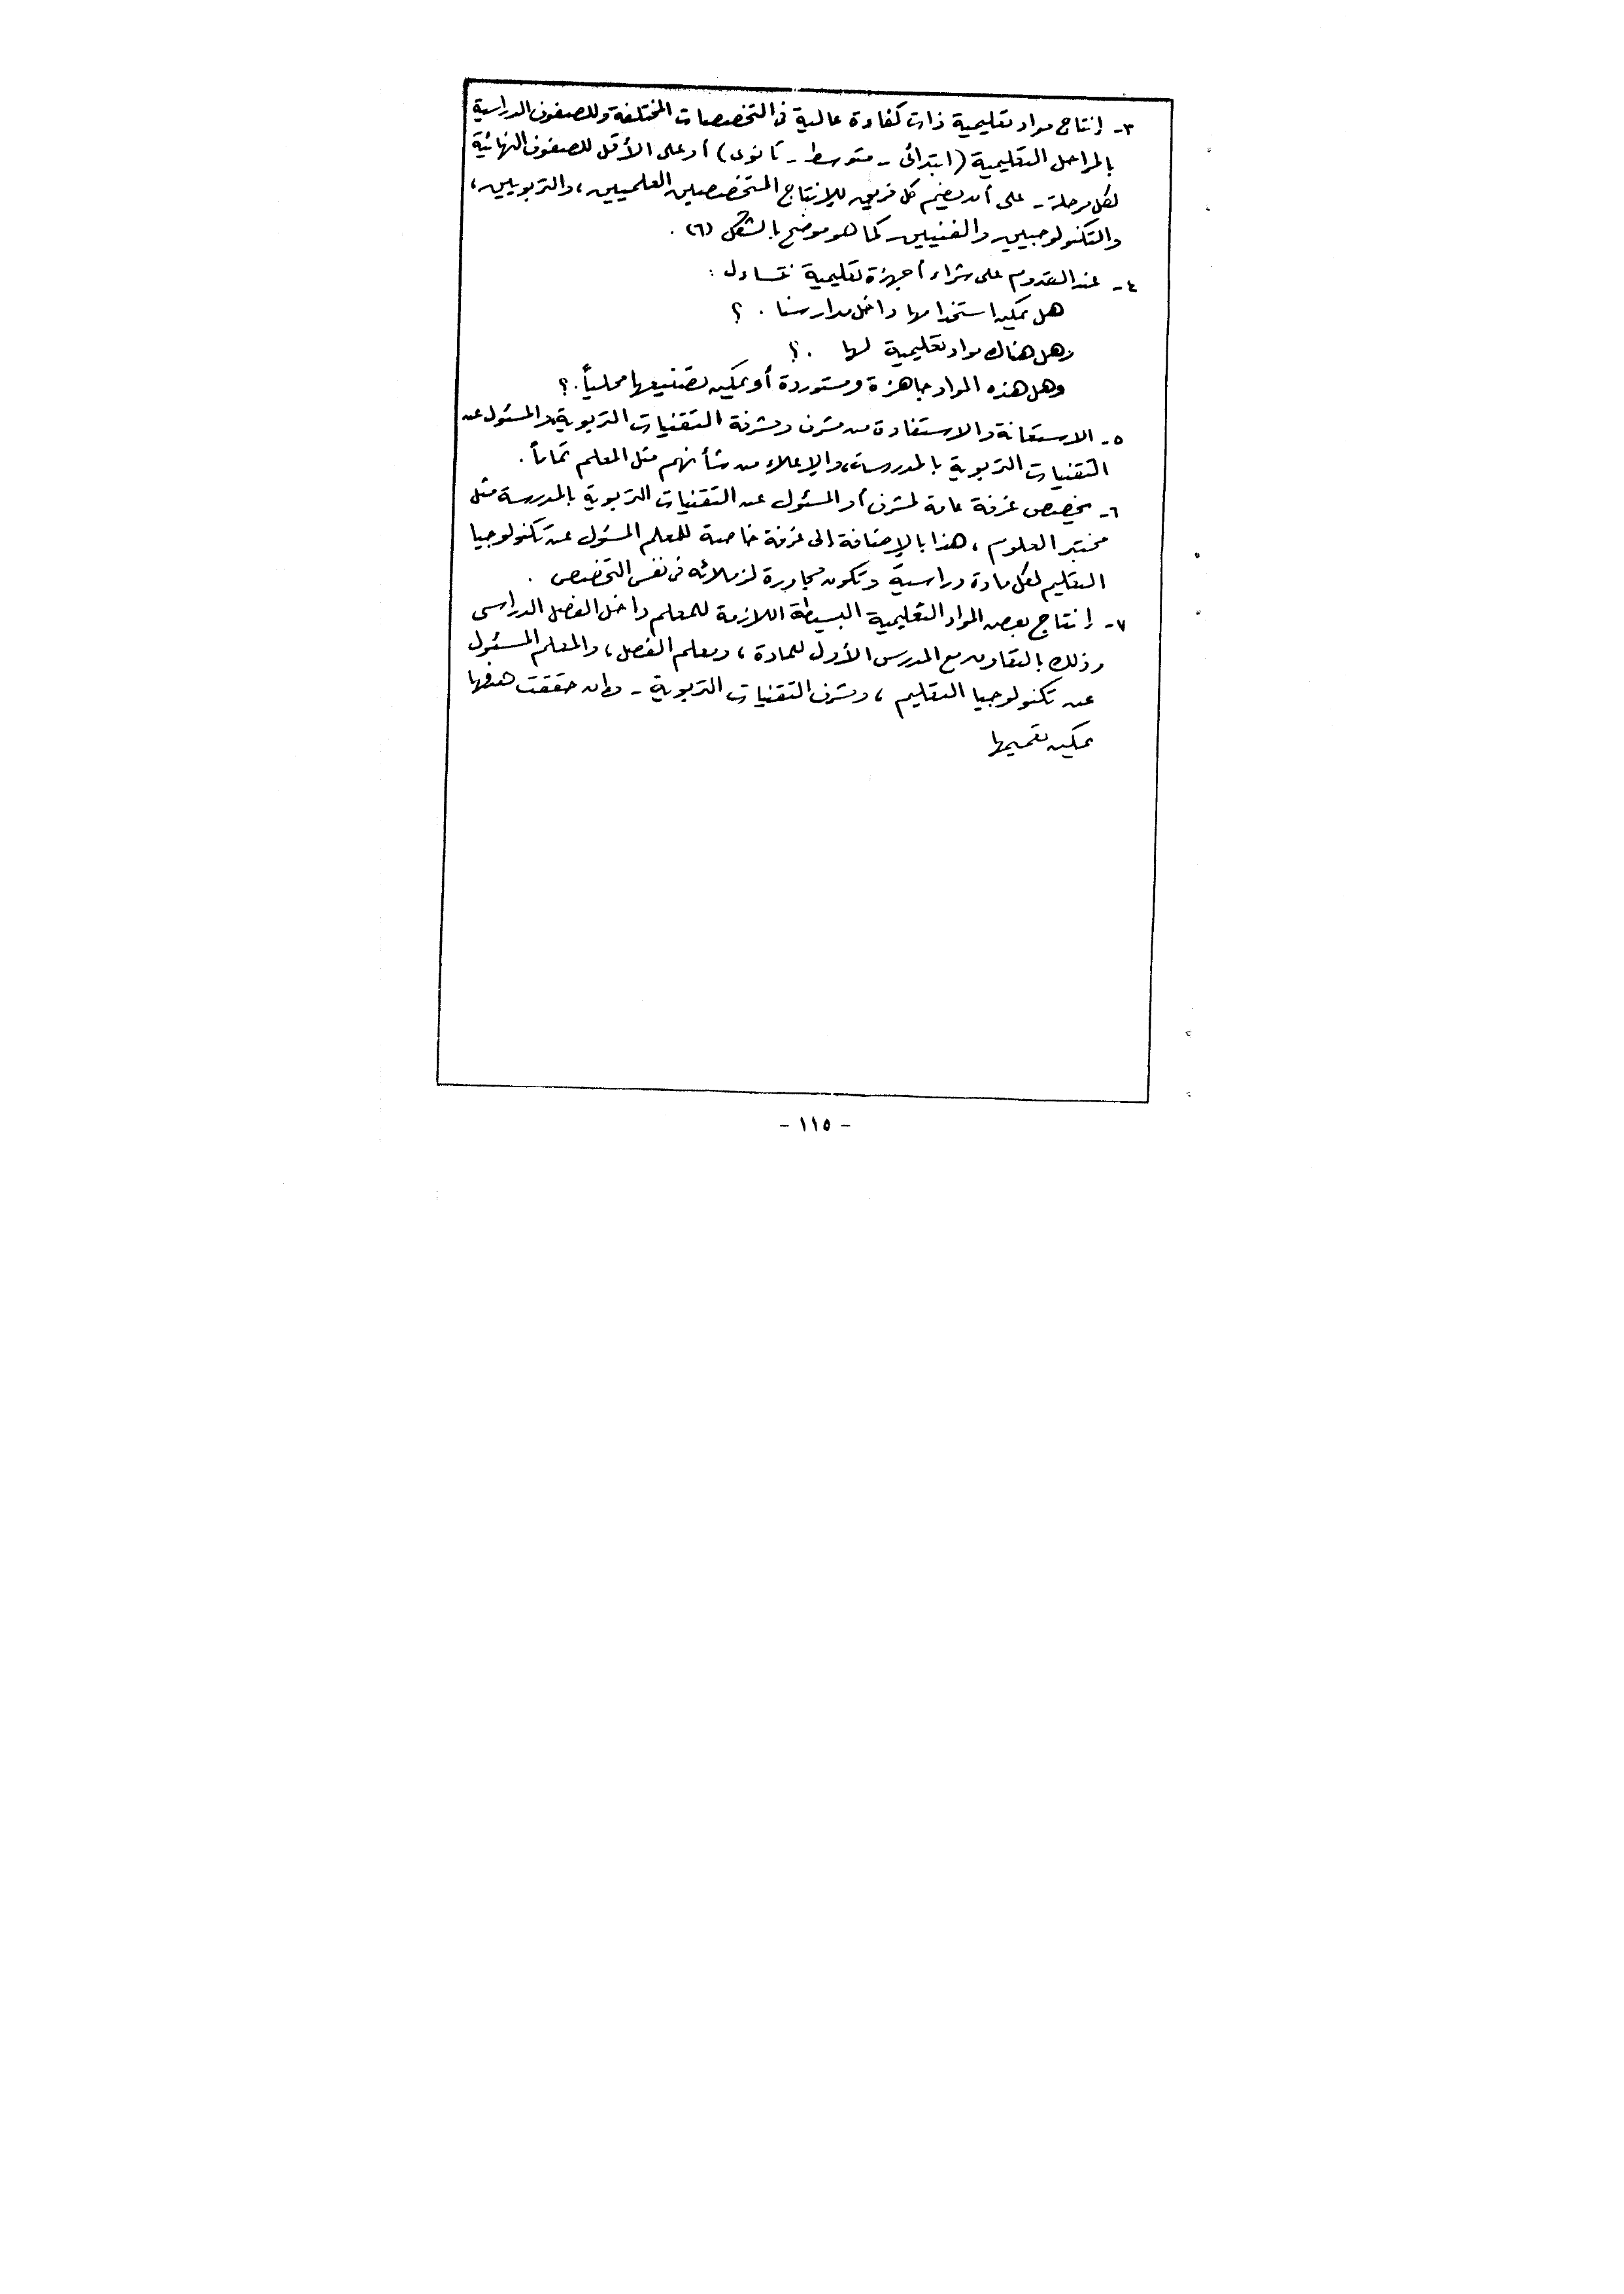 ٣- إنتاج مواد تعليمية ذات كفاءة عالية فى التخصصات المختلفة وللصفوف الدراسية
بالمراحل التعليمية (ابتدائى - متوسط - ثانوى) أو على الأقل للصفوف النهائية
لكل مرحلة - على أن يضم كل فريق للإنتاج المتخصصين العلميين، والتربويين،
والتكنولوجيين والفنيين كما هو موضح بالشكل (٦) .
٤- عند القدوم على شراء أجهزة تعليمية نتساءل :
هل يمكن استخدامها داخل مدارسنا . ؟
وهل هناك مواد تعليمية لها . ؟
وهل هذه المواد جاهزة ومستوردة أو يمكن تصنيعها محلياً . ؟
٥- الاستعانة والاستفادة من مشرف ومشرفة التقنيات التربوية، والمسئول عن
التقنيات التربوية بالمدرسة، والإعلاء من شأنهم مثل المعلم تماماً .
٦- تخصيص غرفة عامة لمشرف أو المسئول عن التقنيات التربوية بالمدرسة مثل
مختبر العلوم ، هذا بالإضافة إلى غرفة خاصة للمعلم المسئول عن تكنولوجيا
التعليم لكل مادة دراسية وتكون مجاورة لزملائه فى نفس التخصص .
٧- إنتاج بعض المواد التعليمية البسيطة اللازمة للمعلم داخل الفصل الدراسى
وذلك بالتعاون مع المدرس الأول للمادة ، ومعلم الفصل ، والمعلم المسئول
عن تكنولوجيا التعليم ، ومشرف التقنيات التربوية - وإن حققت هدفها
يمكن تعميمها
- ١١٥ -